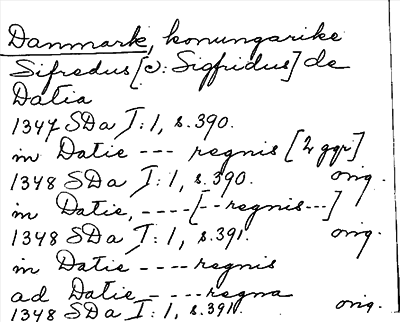 Danmark, konungarike
Sifredus [ɔ: Sigfridus] de
Datia
1347 SDa I: 1, s. 390.
in Datie --- regnis [2 ggr]
1348 SDa I: 1, s. 390. orig.
in Datie, ---- [--regnis---]
1348 SDa I: 1, s. 391. orig.
in Datie ---- regnis
ad Datie ---- regna
1348 SDa I: 1, s. 391. orig.